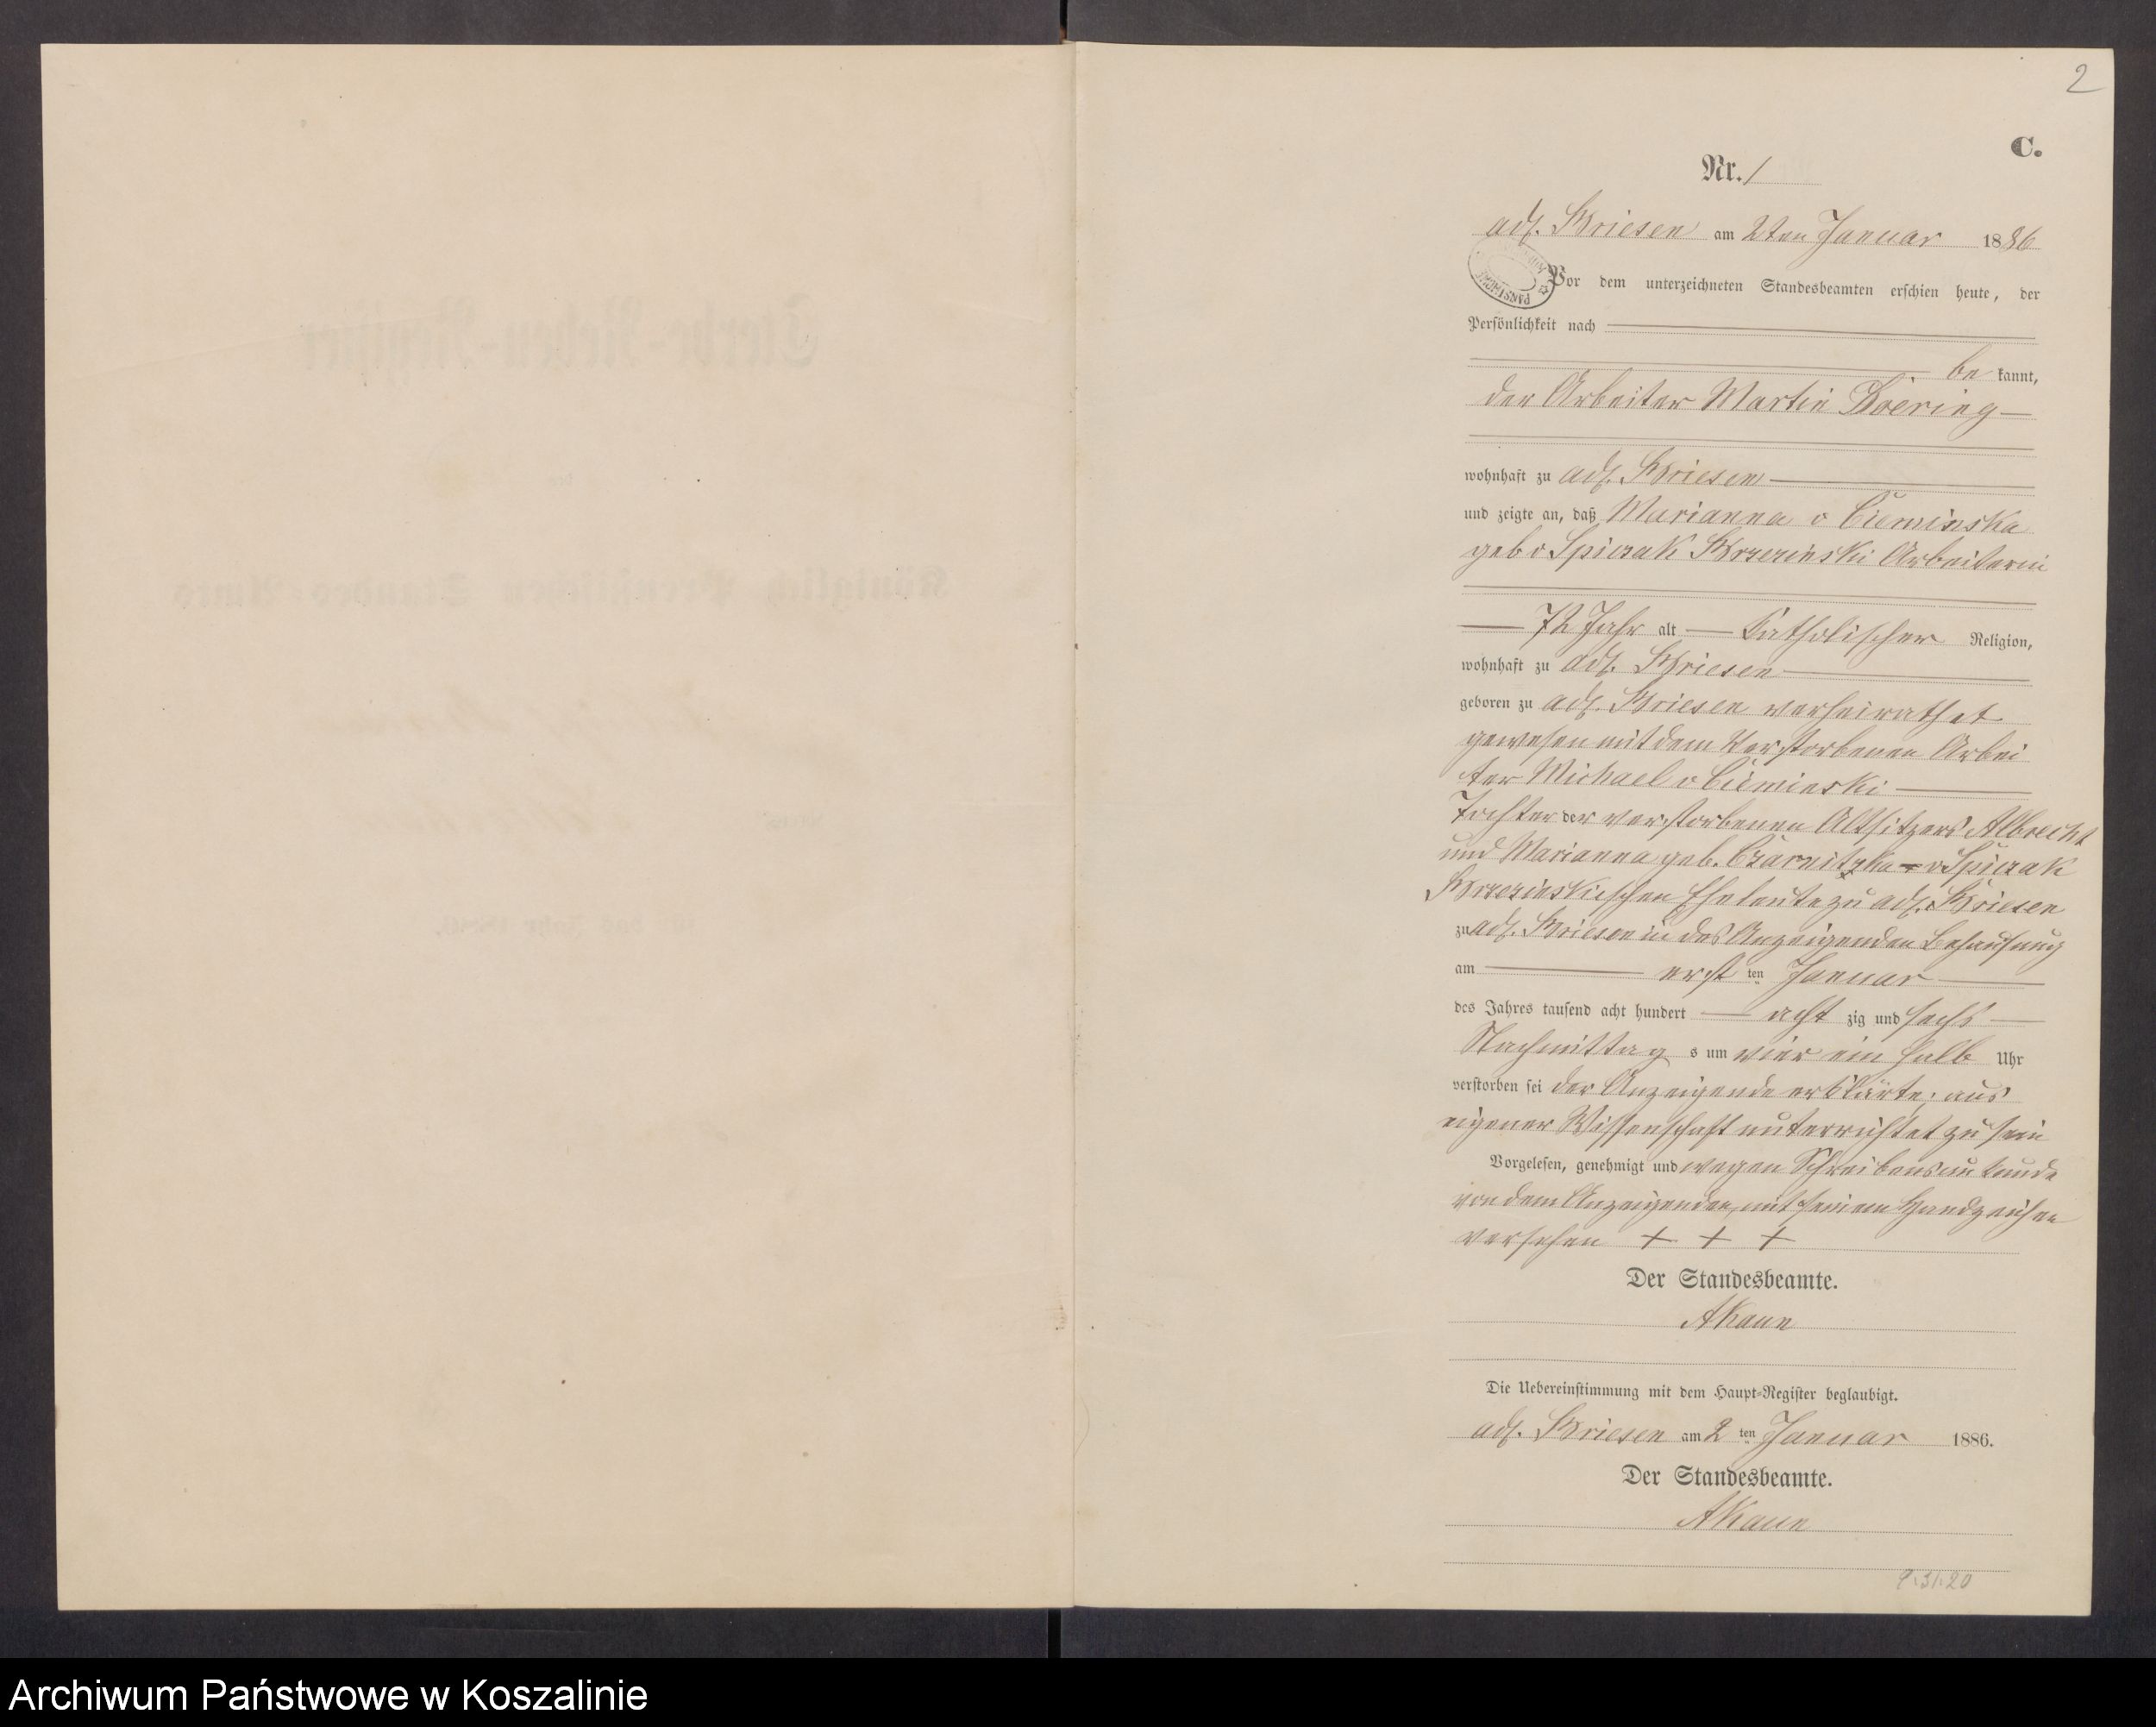 2
C.
Nr. 1
adl. Briesen am 2ten Januar 1886
Vor dem unterzeichneten Standesbeamten erschien heute, der
Persönlichkeit nach
be kannt,
der Arbeiter Martin Doering
wohnhaft zu adl. Briesen
und zeigte an, daß Marianna v Cieminska
geb v Spiczak Brzezinski Arbeiterin
72 Jahr alt katholischer Religion,
wohnhaft zu adl. Briesen
geboren zu adl. Briesen verheirathet
gewesen mit dem Verstorbenen Arbei
ter Michael v Cieminski
Tochter der verstorbenen Altsitzers Albrecht
und Marianna geb. Czarnitzka v Spiczak
Brzezinskischen Eheleute zu adl. Briesen
zu adl. Briesen in des Anzeigenden Behausung
am erst ten Januar
des Jahres tausend acht hundert acht zig und sechs
Nachmittag s um vier ein halb Uhr
verstorben sei der Anzeigende erklärte, aus
eigener Wissenschaft unterrichtet zu sein
Vorgelesen, genehmigt und wegen Schreibensunkunde
von dem Anzeigenden mit seinem Handzeichen
versehen + + +
Der Standesbeamte.
AKaun
Die Uebereinstimmung mit dem Haupt-Register beglaubigt.
adl. Briesen am 2 ten Januar 1886.
Der Standesbeamte.
AKaun
Archiwum Państwowe w Koszalinie